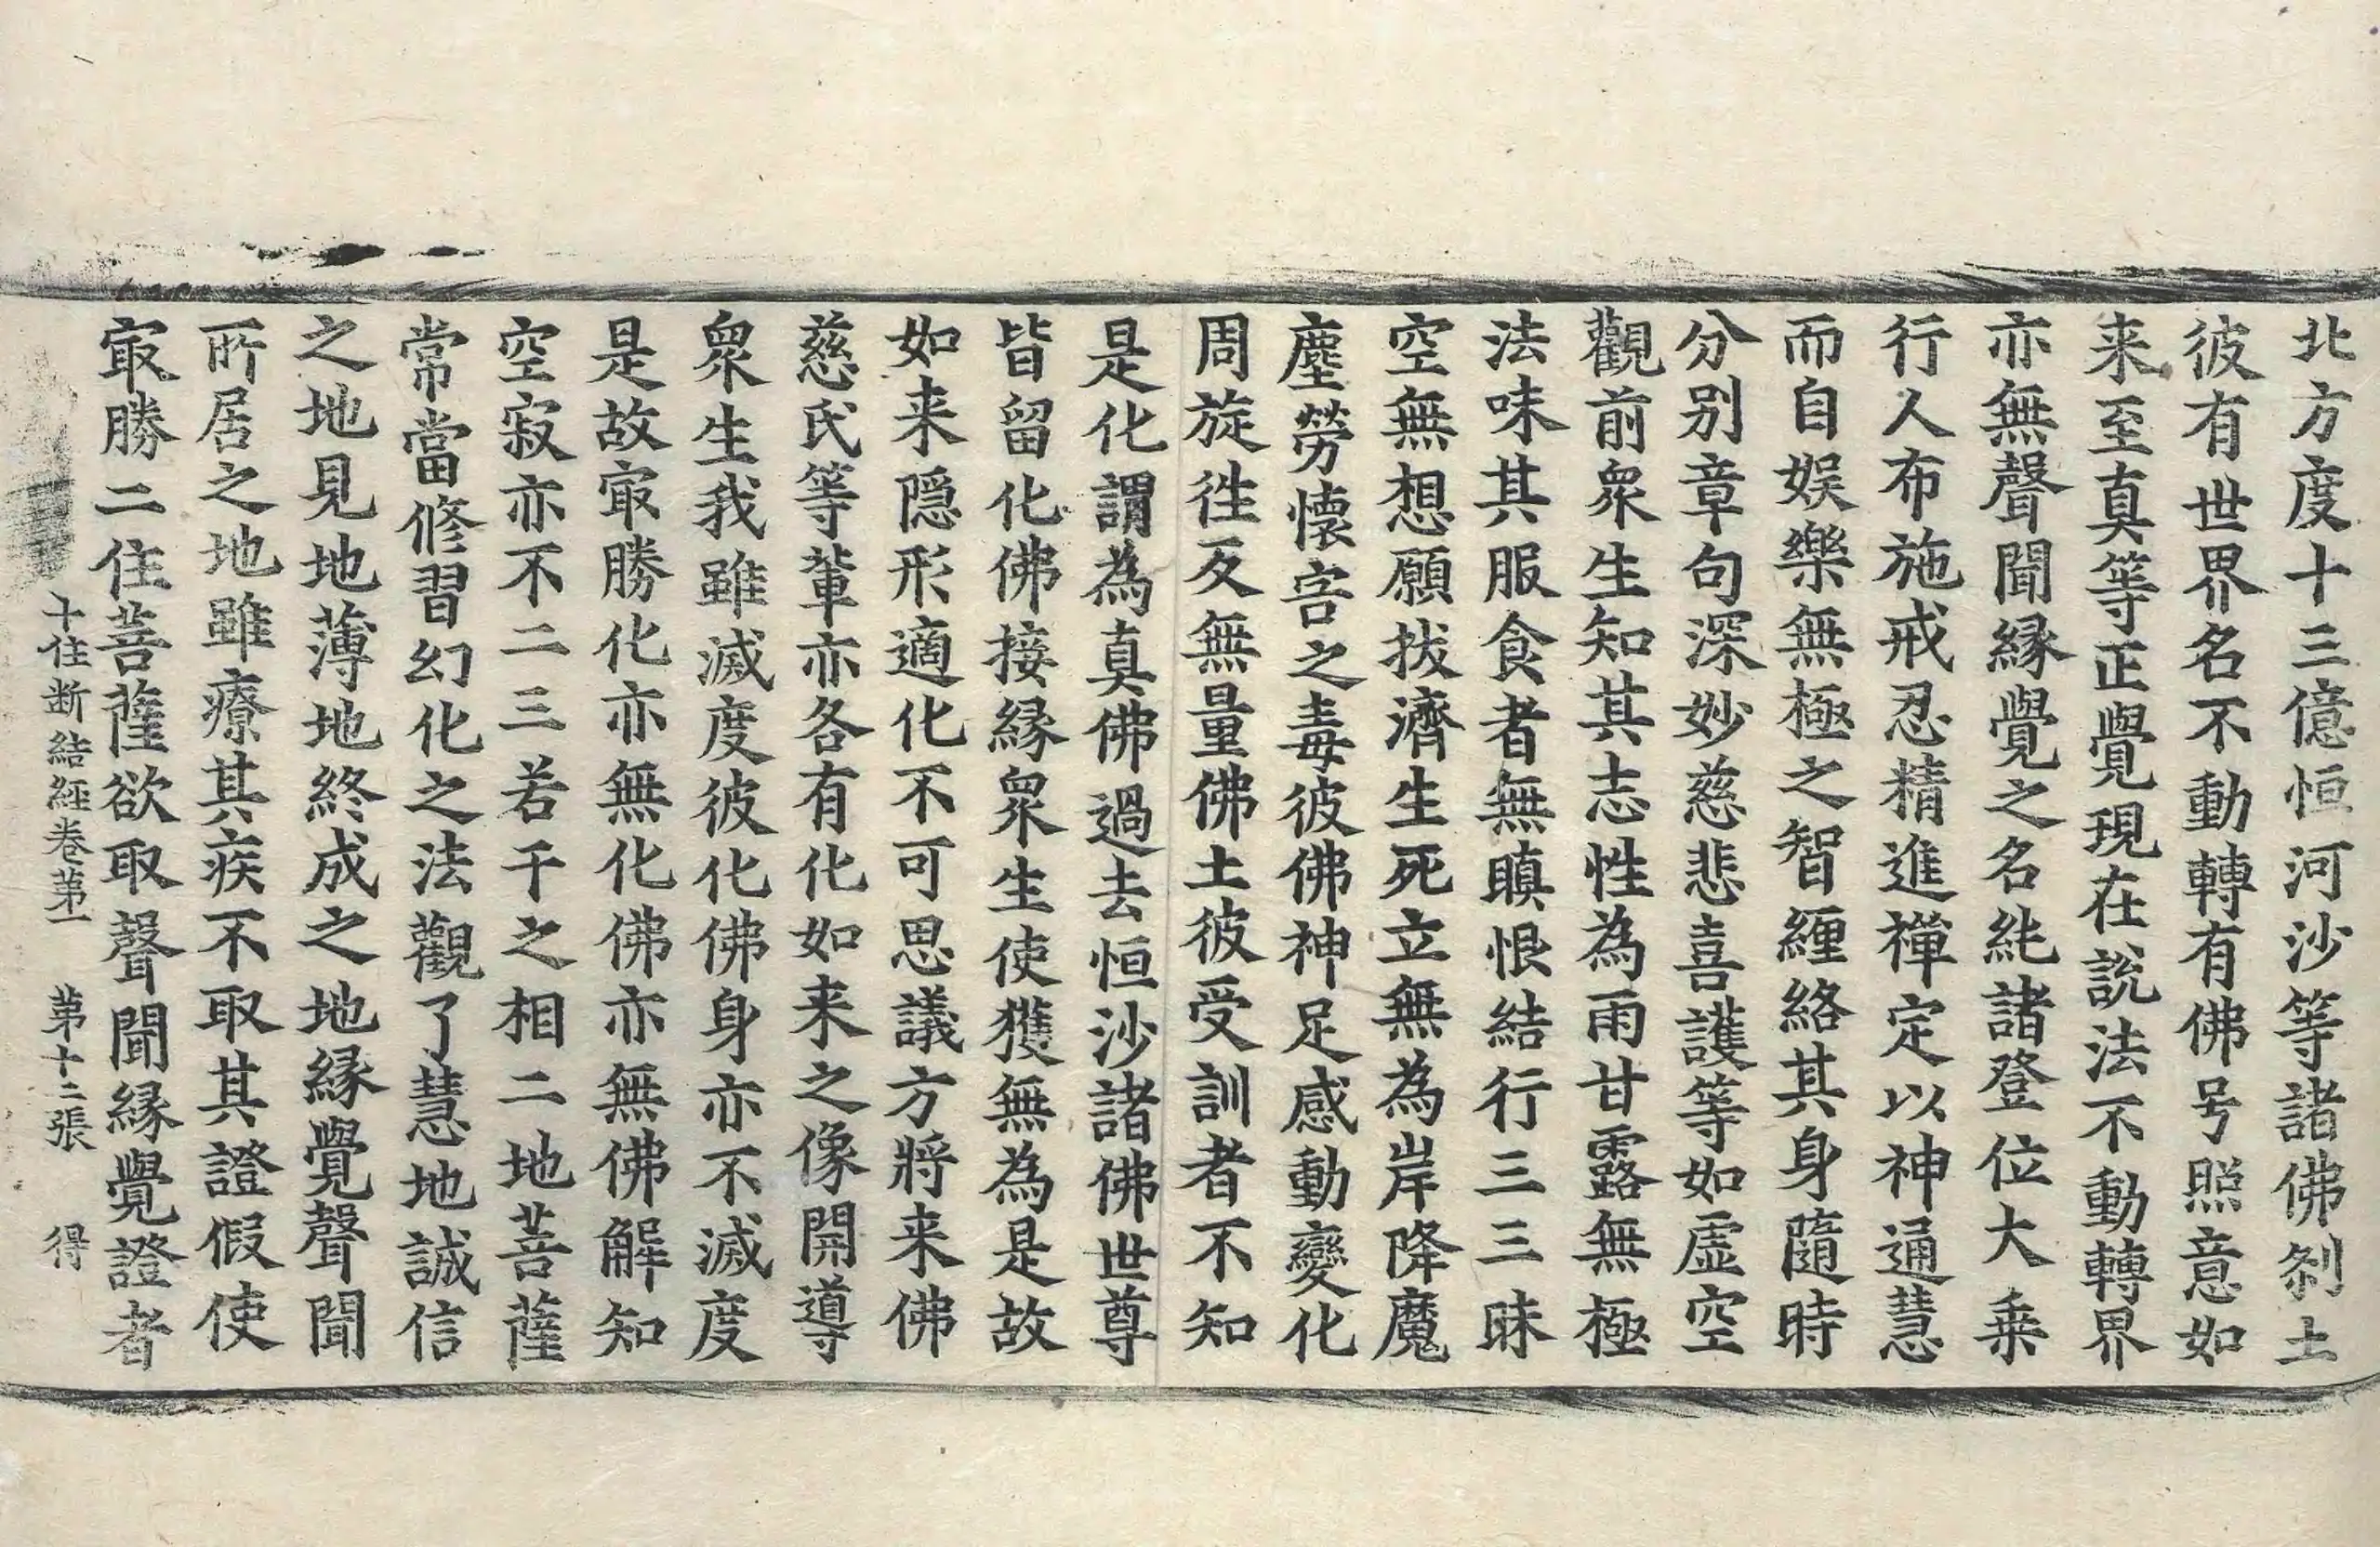 北方度十三億恒河沙等諸佛剎土
彼有世界名不動轉有佛号照意如
来至真等正覺現在說法不動轉界
亦無聲聞縁覺之名純諸登位大乗
行人布施戒忍精進禪定以神通慧
而自娱樂無極之智纒絡其身隨時
分别章句深妙慈悲喜護等如虛空
觀前衆生知其志性為雨甘露無極
法味其服食者無瞋恨結行三三昧
空無想願拔濟生死立無為岸降魔
塵勞懷害之毒彼佛神足感動變化
周旋徃反無量佛土彼受訓者不知
是化謂為真佛過去恒沙諸佛世尊
皆留化佛接縁衆生使獲無為是故
如来隱形適化不可思議方將来佛
慈氏等軰亦各有化如来之像開導
衆生我雖滅度彼化佛身亦不滅度
是故冣勝化亦無化佛亦無佛解知
空寂亦不二三若干之相二地菩薩
常當修習幻化之法觀了慧地誠信
之地見地薄地終成之地縁覺聲聞
所居之地雖療其疾不取其證假使
冣勝二住菩薩欲取聲聞縁覺證者
十住断結經卷苐一　苐十二張　得